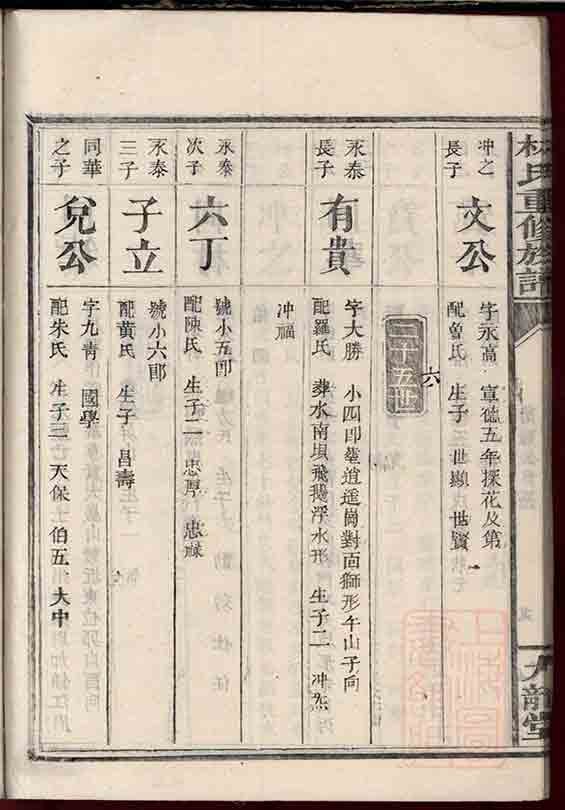 林氏重修族譜
九龍堂
冲之長子
文公
字永高 宣德五年探花及第
配曾氏 生子二 世顯 世賢
二十五世
六
永泰長子
有貴
字大勝 小四郎 葬道遥崗對面獅形午山子向
配羅氏 葬水南垻飛鵝浮水形 生子二 冲杰
冲福
永泰次子
六丁
號小五郎
配陳氏 生子二 忠厚 忠祿
永泰三子
子立
號小六郎
配黄氏 生子 昌壽
同華之子
兌公
字九靑 國學
配朱氏 生子三 天保 伯五 大中
上海圖書館藏